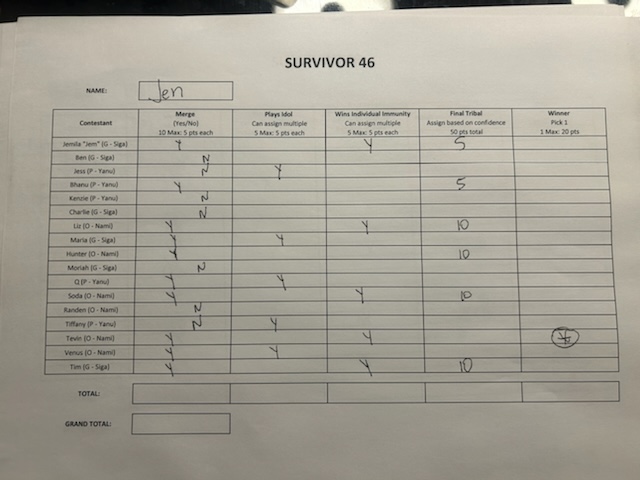 SURVIVOR 46
NAME: Jen
Contestant Merge (Yes/No) 10 Max: 5 pts each Plays Idol Can assign multiple 5 Max: 5 pts each Wins Individual Immunity Can assign multiple 5 Max: 5 pts each Final Tribal Assign based on confidence 50 pts total Winner Pick 1 1 Max: 20 pts
Jemila "Jem" (G - Siga) Y Y 5
Ben (G - Siga) N
Jess (P - Yanu) N Y
Bhanu (P - Yanu) Y 5
Kenzie (P - Yanu) N
Charlie (G - Siga) N
Liz (O - Nami) Y Y 10
Maria (G - Siga) Y Y
Hunter (O - Nami) Y 10
Moriah (G - Siga) N
Q (P - Yanu) Y Y
Soda (O - Nami) Y Y 10
Randen (O - Nami) N
Tiffany (P - Yanu) N Y
Tevin (O - Nami) Y Y
Venus (O - Nami) Y Y
Tim (G - Siga) Y Y 10
TOTAL:
GRAND TOTAL: